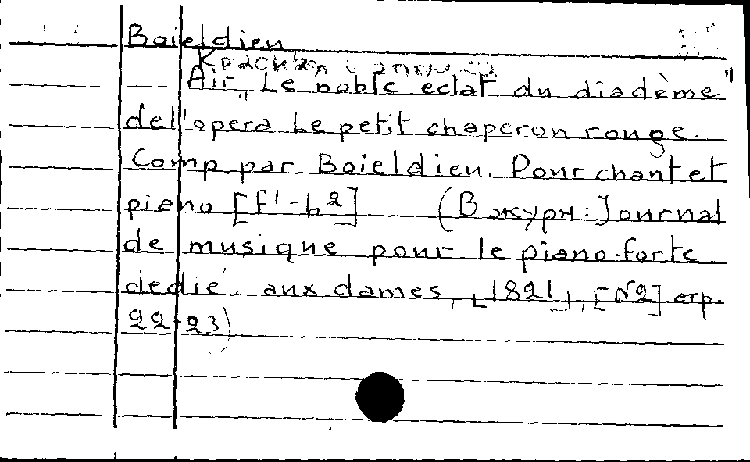 Boieldieu
Красная шапочка
Air „Le noble eclat du diadème"
de l'opera Le petit chaperon rouge.
Comp par Boieldieu. Pour chant et
piano [f¹-h²] (В журн: Journal
de musique pour le piano-forte
dedié aux dames, [1821], [N2] стр.
22-23)